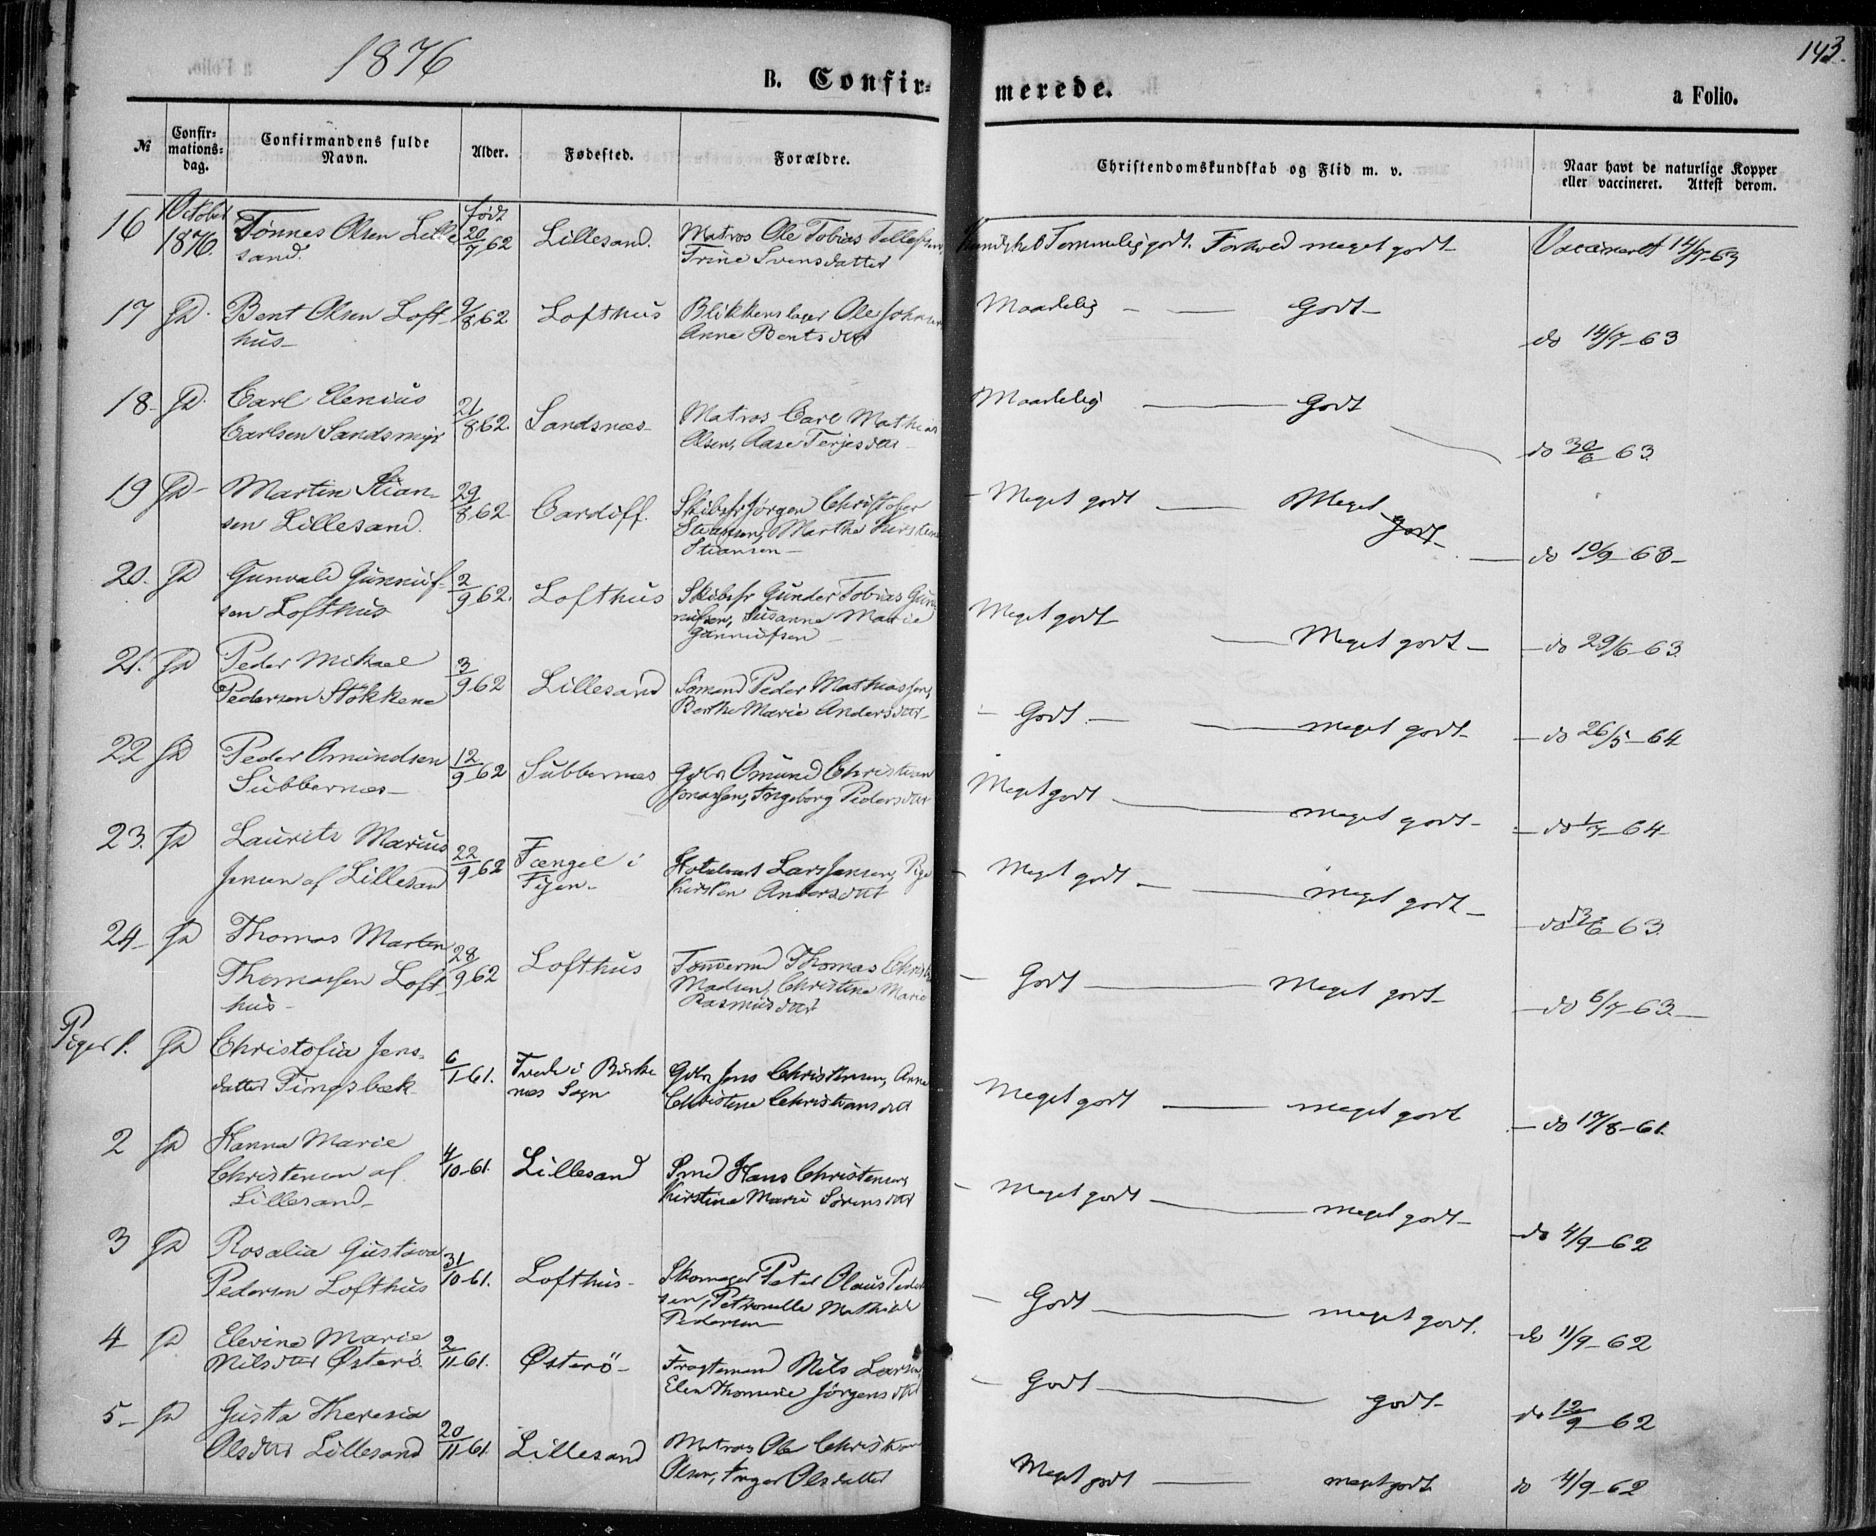 1876
143.
B. Confir-
merede.
a Folio.
№
Confir-
mations-
dag.
Confirmandens fulde
Navn.
Alder.
Fødested.
Forældre.
Christendomskundskab og Flid m. v.
Naar havt de naturlige Kopper
eller vaccineret. Attest derom.
16 October 1876. Tønnes Olsen Lille født 20/7 62 Lillesand. Matros Ole Tobias Tellefsen, Kundskab Temmelig godt. Forhold meget godt Vaccineret 14/7-63
sand. Trine Svensdatter
17 Bent Olsen Loft- 9/8 62 Lofthus Blikkenslager Ole Johan Maadelig Godt
hus Anne Bentsdatt do 14/7-63
18 Carl Elenius 21/8 62 Sandsnæs Matros Carl Mathias Maadelig Godt
Carlsen Sandsmyr Olsen, Aase Terjesdatt do 30/6 63
19 Martin Stian- 29/8 62 Cardiff. Skibsfr Jørgen Christofer Meget godt Meget godt
sen Lillesand. Stiansen, Marthe Kirstine do 10/9-63
Stiansen
20. Gunvald Gunnuf- 2/9 62. Lofthus Skibsfr Gunder Tobias Gun- Meget godt Meget godt
sen Lofthus nufsen, Susanne Marie do 29/6-63
Gunnufsen
21. Peder Mikael 3/9 62 Lillesand Sømand Peder Mathiassen, Godt meget godt
Pedersen Stokkene Berthe Marie Andersdatt do 26/5-64
22 Peder Omundsen 12/9 62 Subbernæs Gdbr Omund Christian Meget godt meget godt
Subbernæs Jonassen, Ingeborg Pedersdatt do 1/7-64
23. Laurits Marius 22/9 62 Fængel i Lars Jensen, Pige Meget godt meget godt
Jensen af Lillesand Fyen Kirsten Andersdatt 63.
24 Thomas Martin 28/9 62 Lofthus Tømmermd Thomas Godt Meget godt
Thomassen Loft- Madsen, Christine Marie do 6/7-63
hus Rasmusdatt
Piger 1. Christofia Jens- 6/1-61. i Birke Gdbr Jens Christensen, Anne Meget godt meget godt
datter Tingsbæk næs Sogn Christine Christiansdatt do 17/8-61.
2 Hanna Marie 4/10-61. Lillesand Smed Hans Christensen, Meget godt meget godt
Christensen af Kirstine Marie Sørensdatt do 4/9-62
Lillesand
3 Rosalia Gustava 31/10-61. Lofthus Skomager Peter Olaus Peder Godt meget godt.
Pedersen Lofthus sen, Petronelle Mathilde do 11/9-62
Pedersen
4 Elevine Marie 2/11-61. Østerö Fragtemand Nils Larsen Godt godt
Nilsdatt Østerö Elen Thomine Jørgensdatt do 12/9 62
5 Gusta Theresia 20/11-61. Lillesand Matros Ole Christian Meget godt meget godt
Olsdatt Lillesand Olsen, Inger Olsdatter do 4/9-62